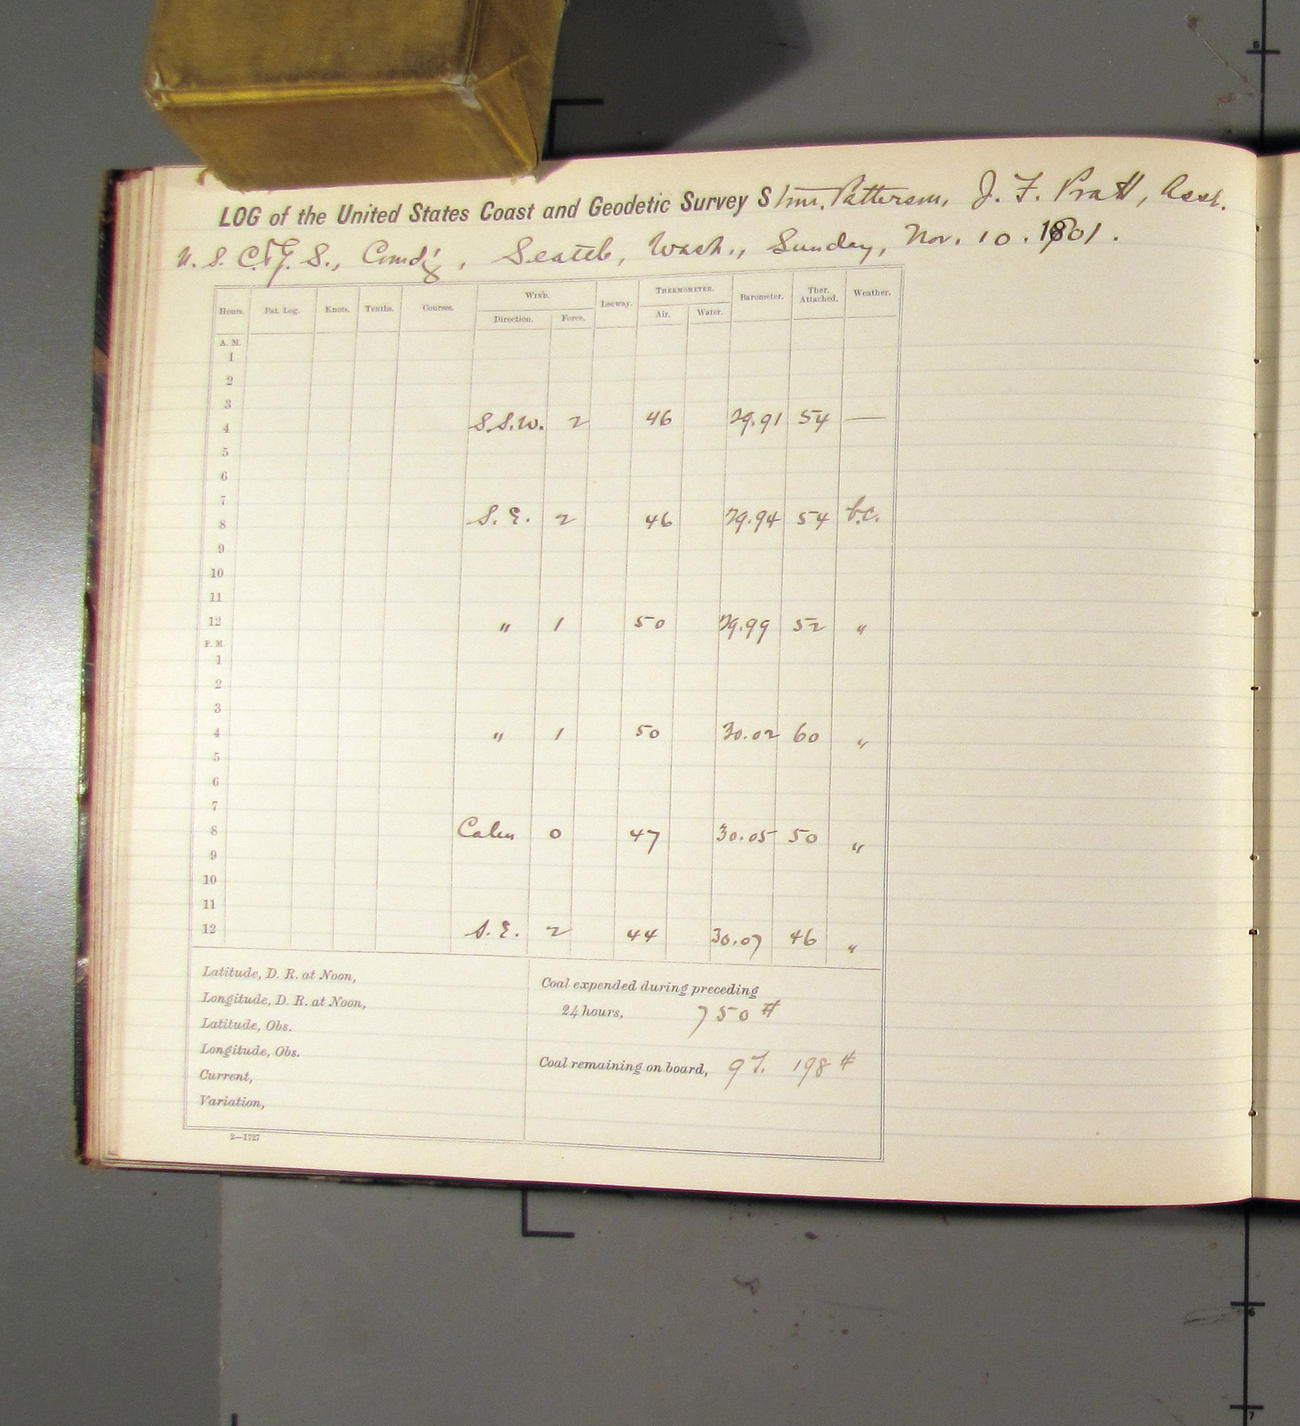 LOG of the United States Coast and Geodetic Survey Stmr. Patterson, J. F. Pratt, Asst.
U. S. C. & G. S., Comd'g, Seattle, Wash., Sunday, Nov. 10. 1901.
Hours. Pat. Log. Knots. Tenths. Courses. WIND. Leeway. THERMOMETER. Barometer. Ther. Attached. Weather.
Direction. Force. Air. Water.
A. M.
1
2
3
4 S.S.W. 2 46 29.91 54 —
5
6
7
8 S. E. 2 46 29.94 54 b.c.
9
10
11
12 " 1 50 29.99 52 "
P. M.
1
2
3
4 " 1 50 30.02 60 "
5
6
7
8 Calm 0 47 30.05 50 "
9
10
11
12 S. E. 2 44 30.07 46 "
Latitude, D. R. at Noon,
Longitude, D. R. at Noon,
Latitude, Obs.
Longitude, Obs.
Current,
Variation,
Coal expended during preceding
24 hours, 750 #
Coal remaining on board, 9 T. 198 #
2—1727
6
7